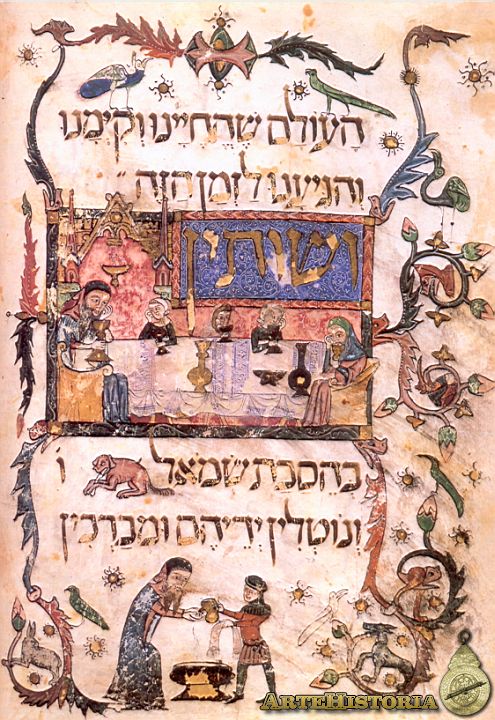 העולם שהחיינו וקימנו
והגיענו לזמן הזה
ושותין
בהסבת שמאל ו
ונוטלין ידיהם ומברכין
ARTEHISTORIA